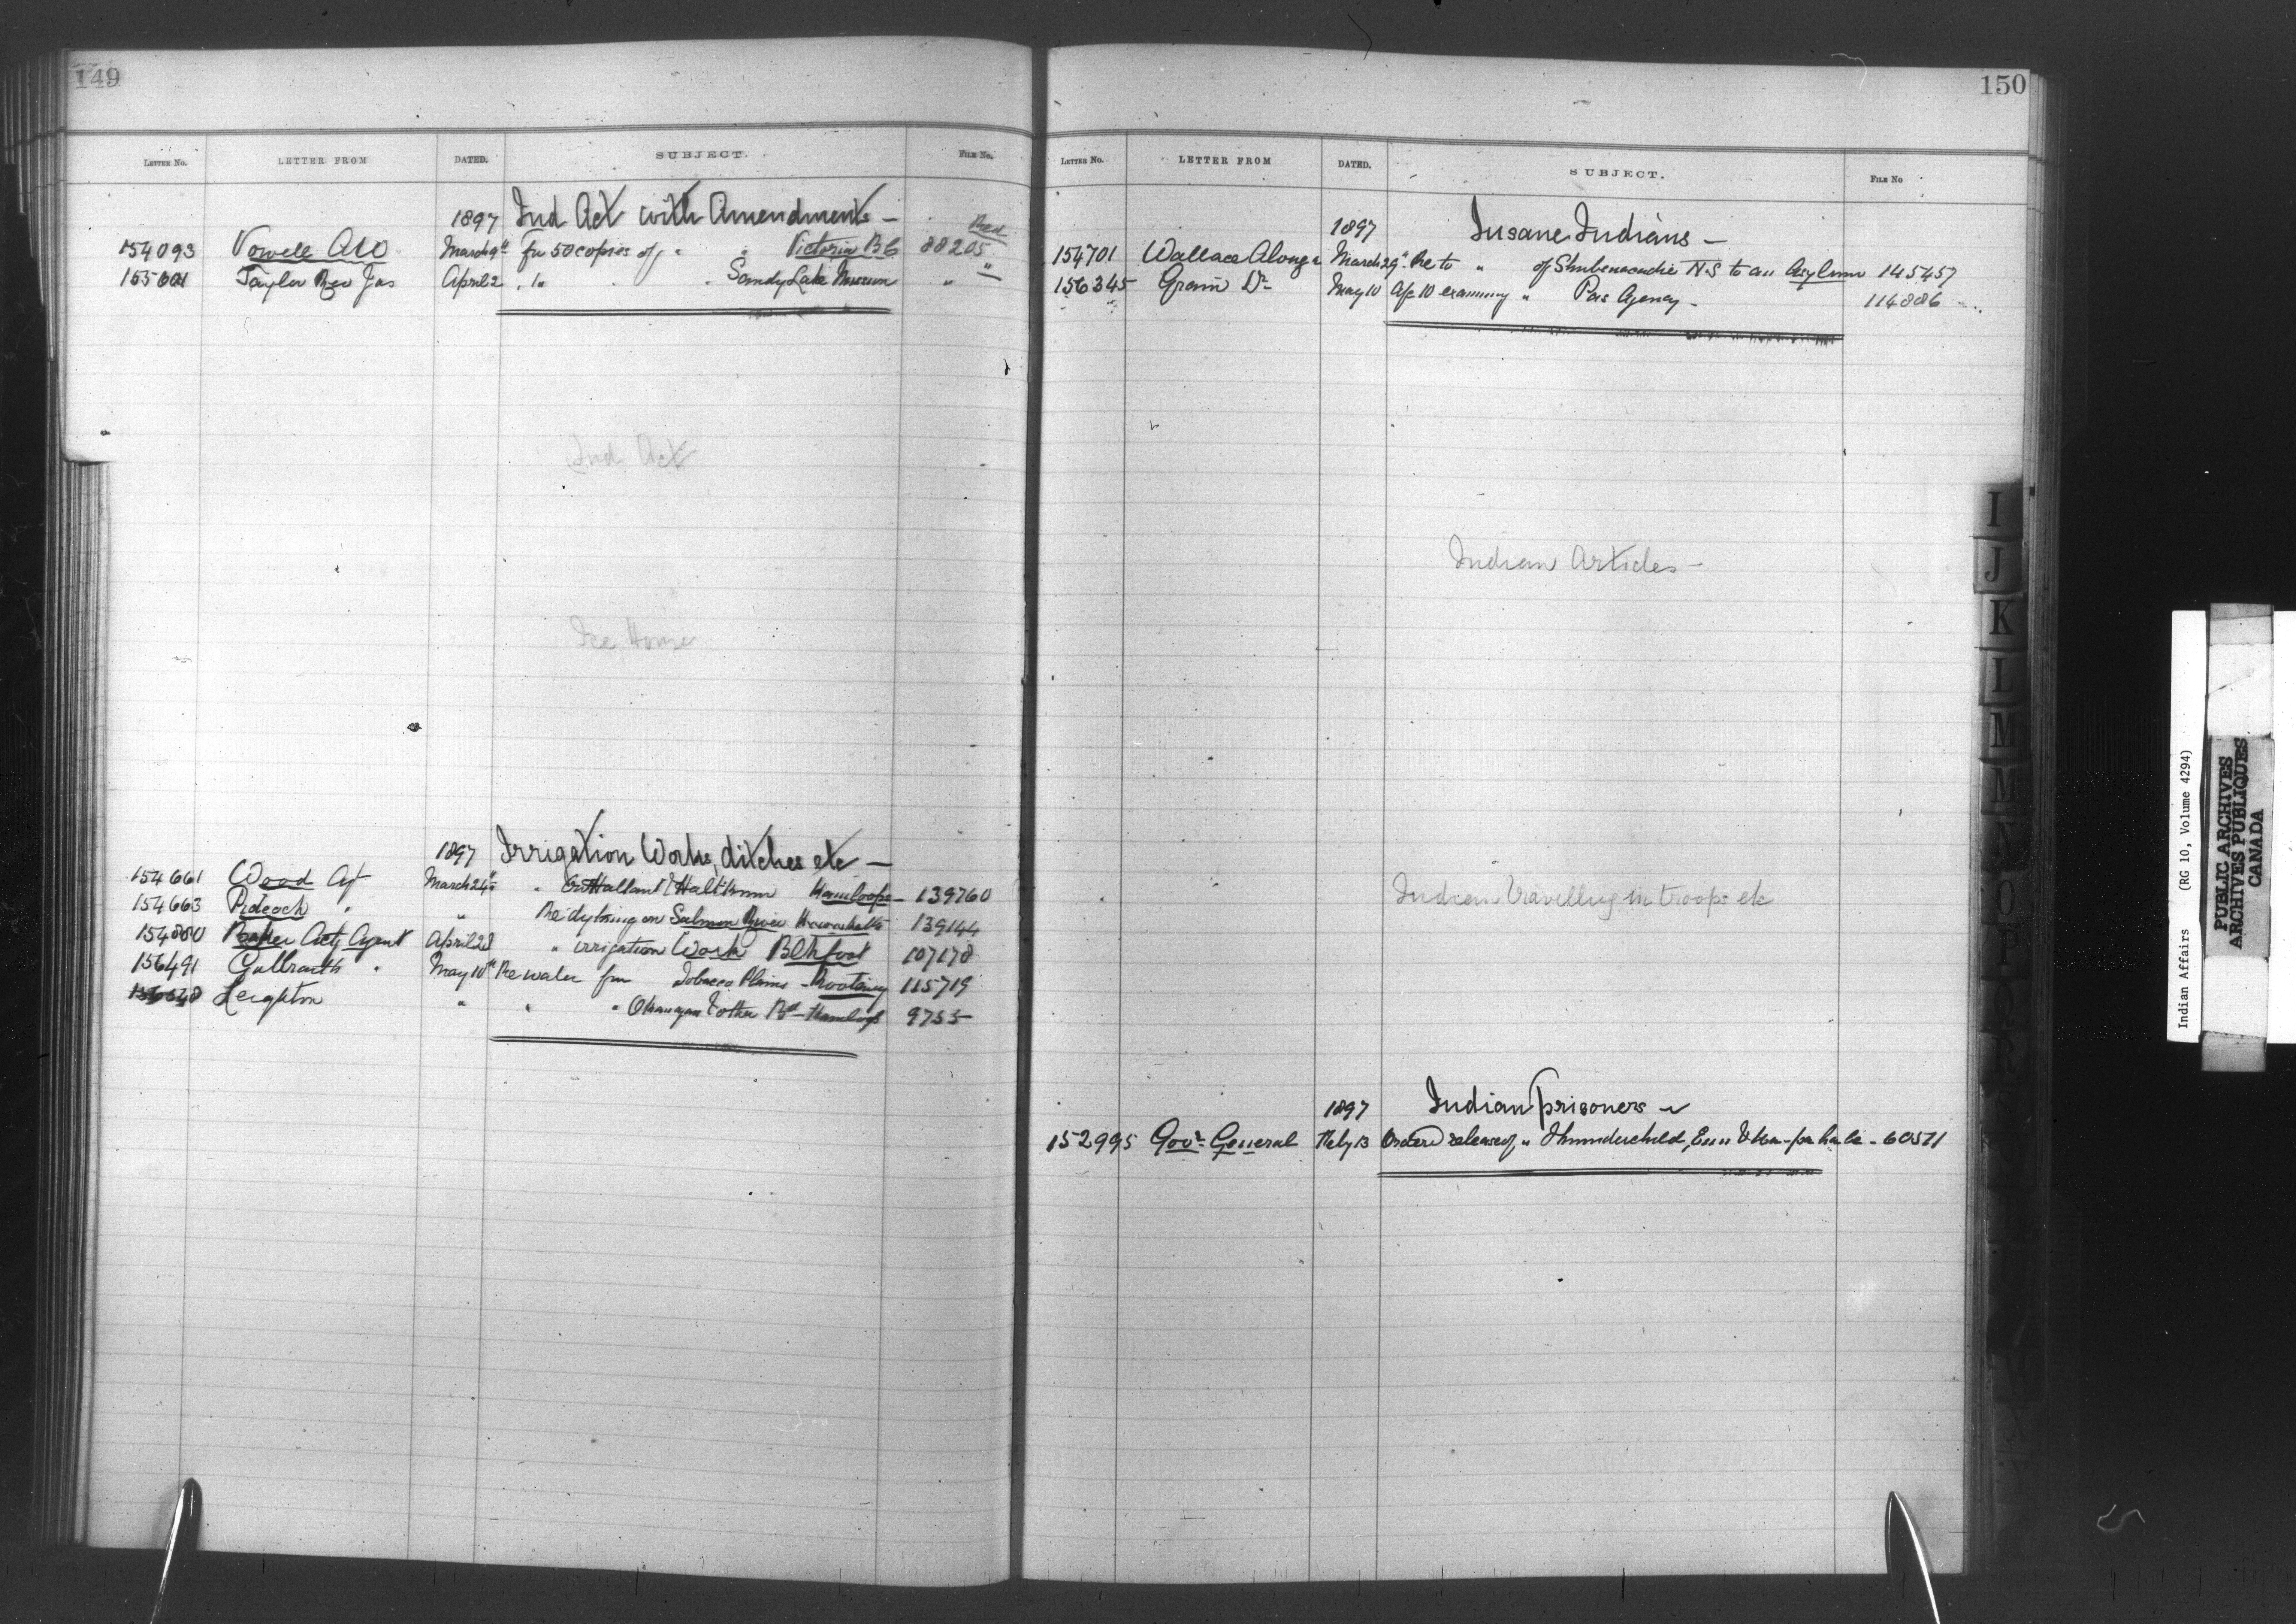 149
LETTER No. LETTER FROM DATED. SUBJECT. FILE No.
1897 Ind Act with Amendments — Red
154093 Vowell A W March 9th for 50 copies of " " Victoria B C 88205
Taylor Rev Jas April 2 " 1 " " Sandy Lake Mission " "
Ind Act
Ice House
1897 Irrigation Works, ditches etc —
154661 Wood Agt March 24th " Kamloops — 139760
154663 Pidcock " " Re dyking on Salmon River 139144
154880 Baker Actg Agent April 28 " irrigation Work Blkfoot 107178
156491 Galbraith " May 10th Re water for Tobacco Plains — Kootenay 115719
Leighton " " " Okanagan & other Kamloops 9755
150
LETTER No. LETTER FROM DATED. SUBJECT. FILE No
1897 Insane Indians —
154701 Wallace Alonzo March 29th Re to " of Shubenacadie N S to an Asylum 145457
156345 Grain Dr May 10 A/c 10 examining " Pas Agency — 114886
Indian Articles —
Indian Travelling in troops etc
1897 Indian prisoners —
152995 Govr General Feby 13 Order'd release of " Thunderchild, 60511
I
J
K
L
M
M
N
O
P
Q
R
W
Indian Affairs (RG 10, Volume 4294)
PUBLIC ARCHIVES
ARCHIVES PUBLIQUES
CANADA